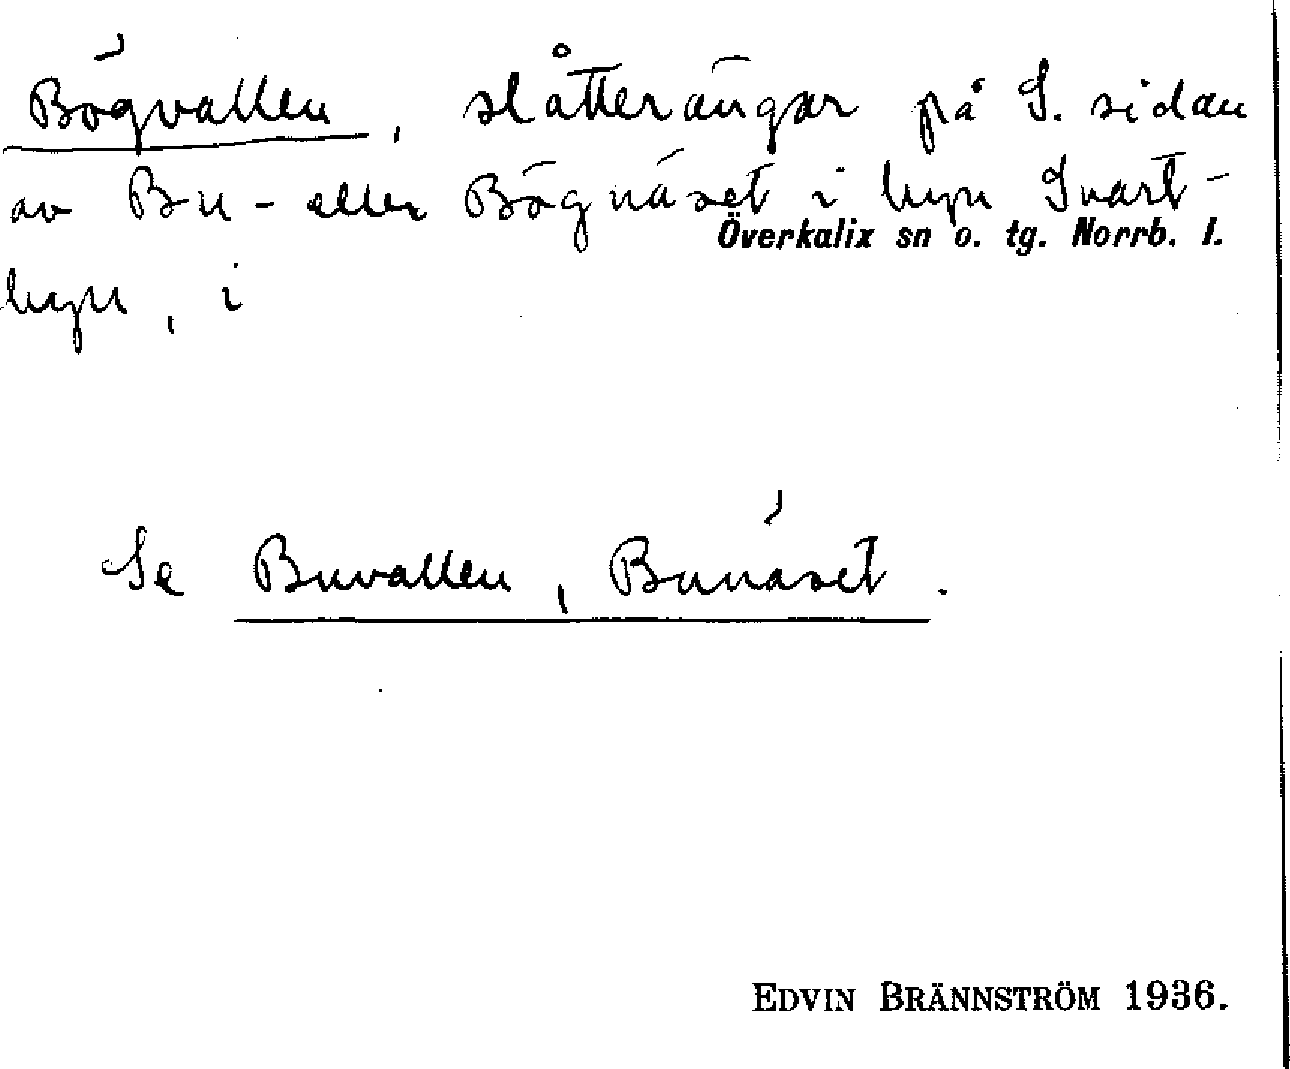 Bögvallen, slåtterängar på S. sidan
av Bu- eller Bögnäset i byn Svart-
Överkalix sn o. tg. Norrb. l.
byn, i
Se Buvallen, Bunäset.
EDVIN BRÄNNSTRÖM 1936.